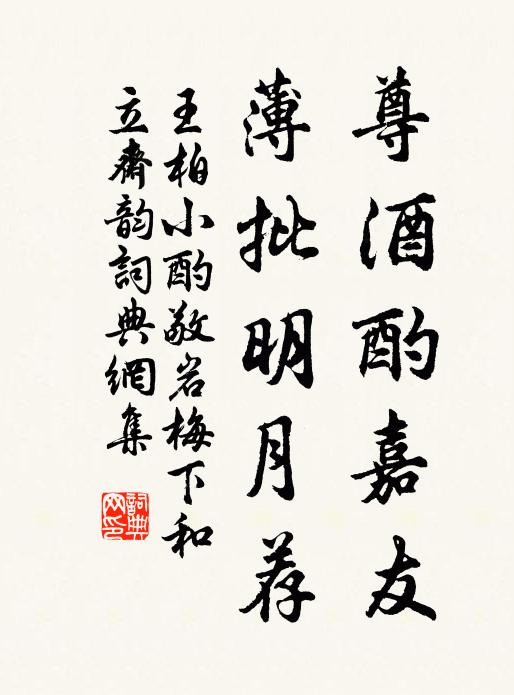 尊酒酌嘉友
薄批明月荐
王柏小酌敬岩梅下和
立斋韵詞典網集
詞典
网印